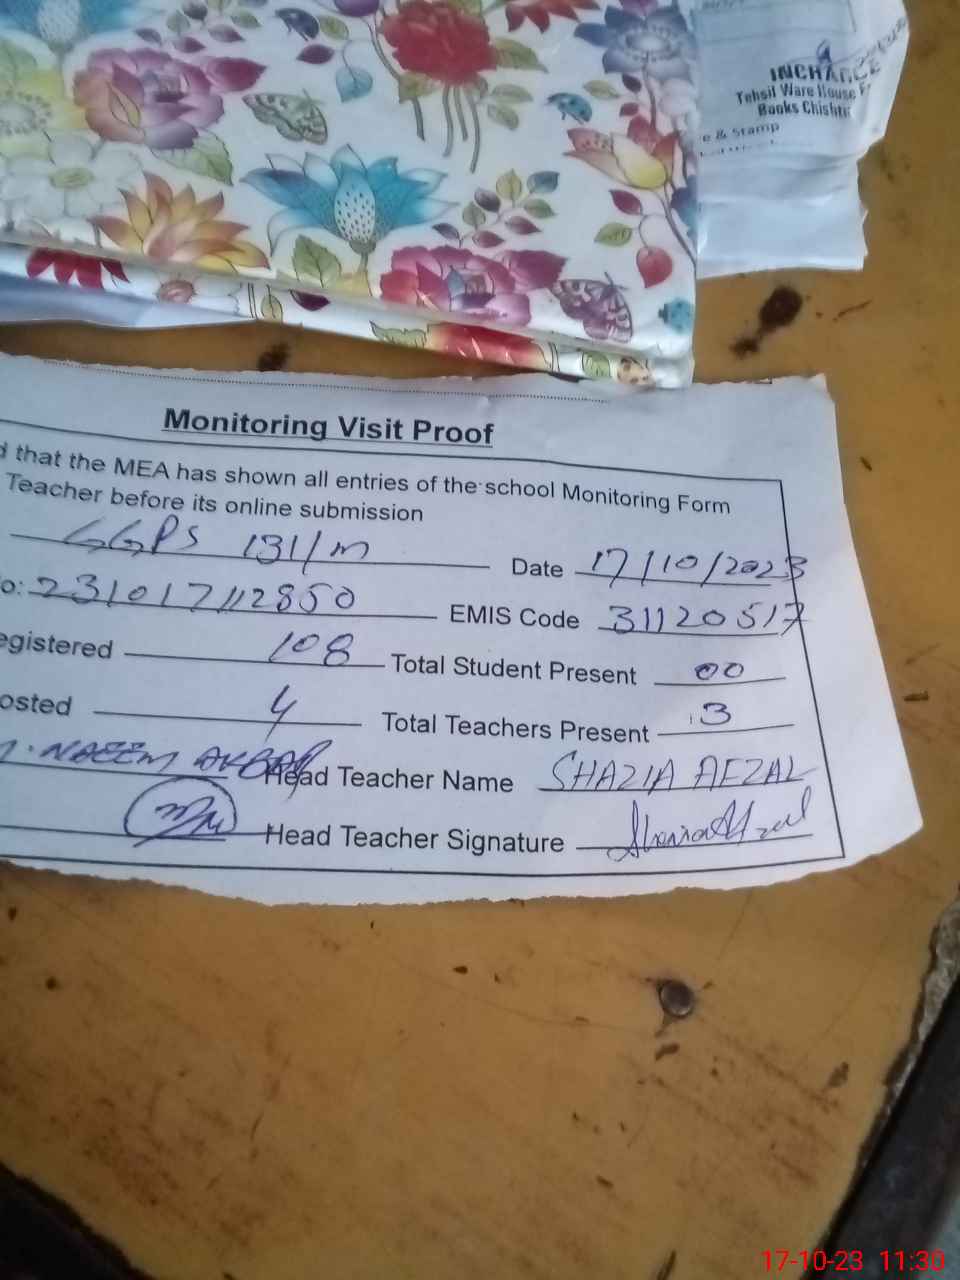 INCHARGE
Tehsil Ware House
Books Chishtia
e & Stamp
Monitoring Visit Proof
d that the MEA has shown all entries of the school Monitoring Form
Teacher before its online submission
GGPS 131/m Date 17/10/2023
o: 231017112850 EMIS Code 31120517
egistered 108 Total Student Present 00
osted 4 Total Teachers Present 3
M. NAEEM AKBAR Head Teacher Name SHAZIA AFZAL
Head Teacher Signature Shazia Afzal
17-10-23 11:30